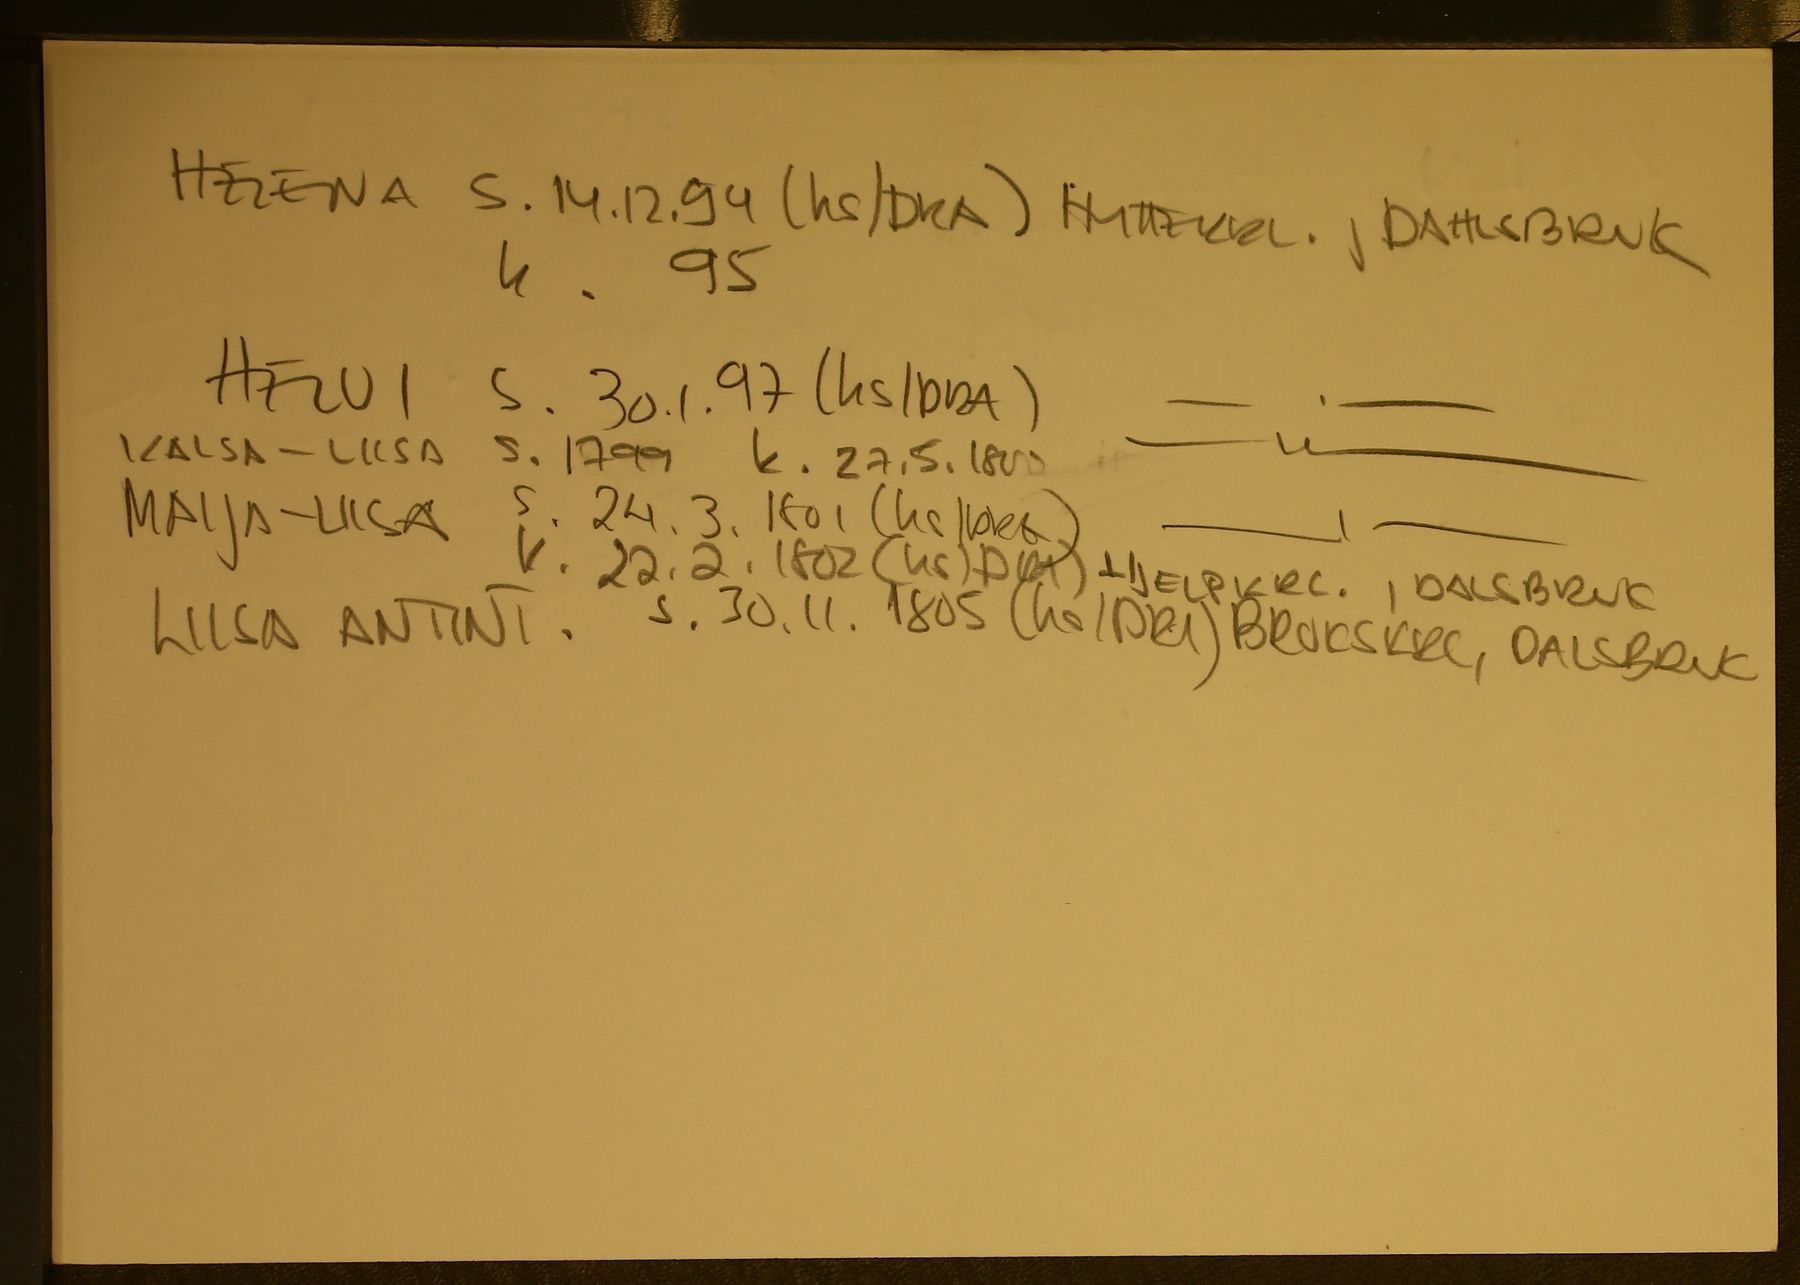 HELENA S. 14.12.94 (hs/DKA) HYTTEKRL., DAHLSBRUK
k. 95
HELVI S. 30.1.97 (hs/DKA) — . —
KAISA-LIISA S. 1799 k. 27.5.1800 — " —
MAIJA-LIISA S. 24.3.1801 (hs/DKA) — | —
k. 22.2.1802 (hs/DKA) HJELPKRL., DALSBRUK
LIISA ANTINT. S. 30.11.1805 (hs/DKA) BRUKSKRL, DALSBRUK